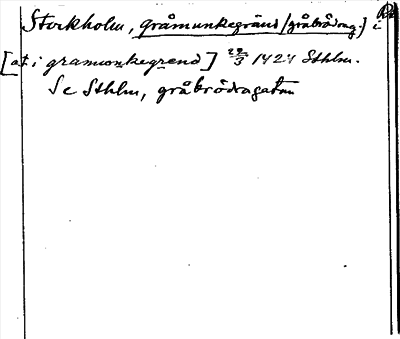 Stockholm, gråmunkegränd (gråbrödrag.) i
[at i gramunkegrend] 22/3 1421 Sthlm.
Se Sthlm, gråbrödragatan